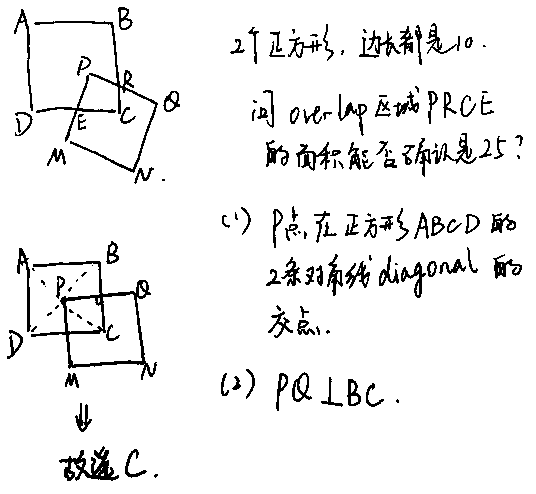 A B
P R Q
D E C
M N.
2个正方形,边长都是10.
问 overlap 区域PRCE
的面积能否确认是25?
(1) P点在正方形ABCD的
2条对角线diagonal的
交点.
(2) PQ⊥BC.
A B
P Q
D C
M N
⇓
故选C.